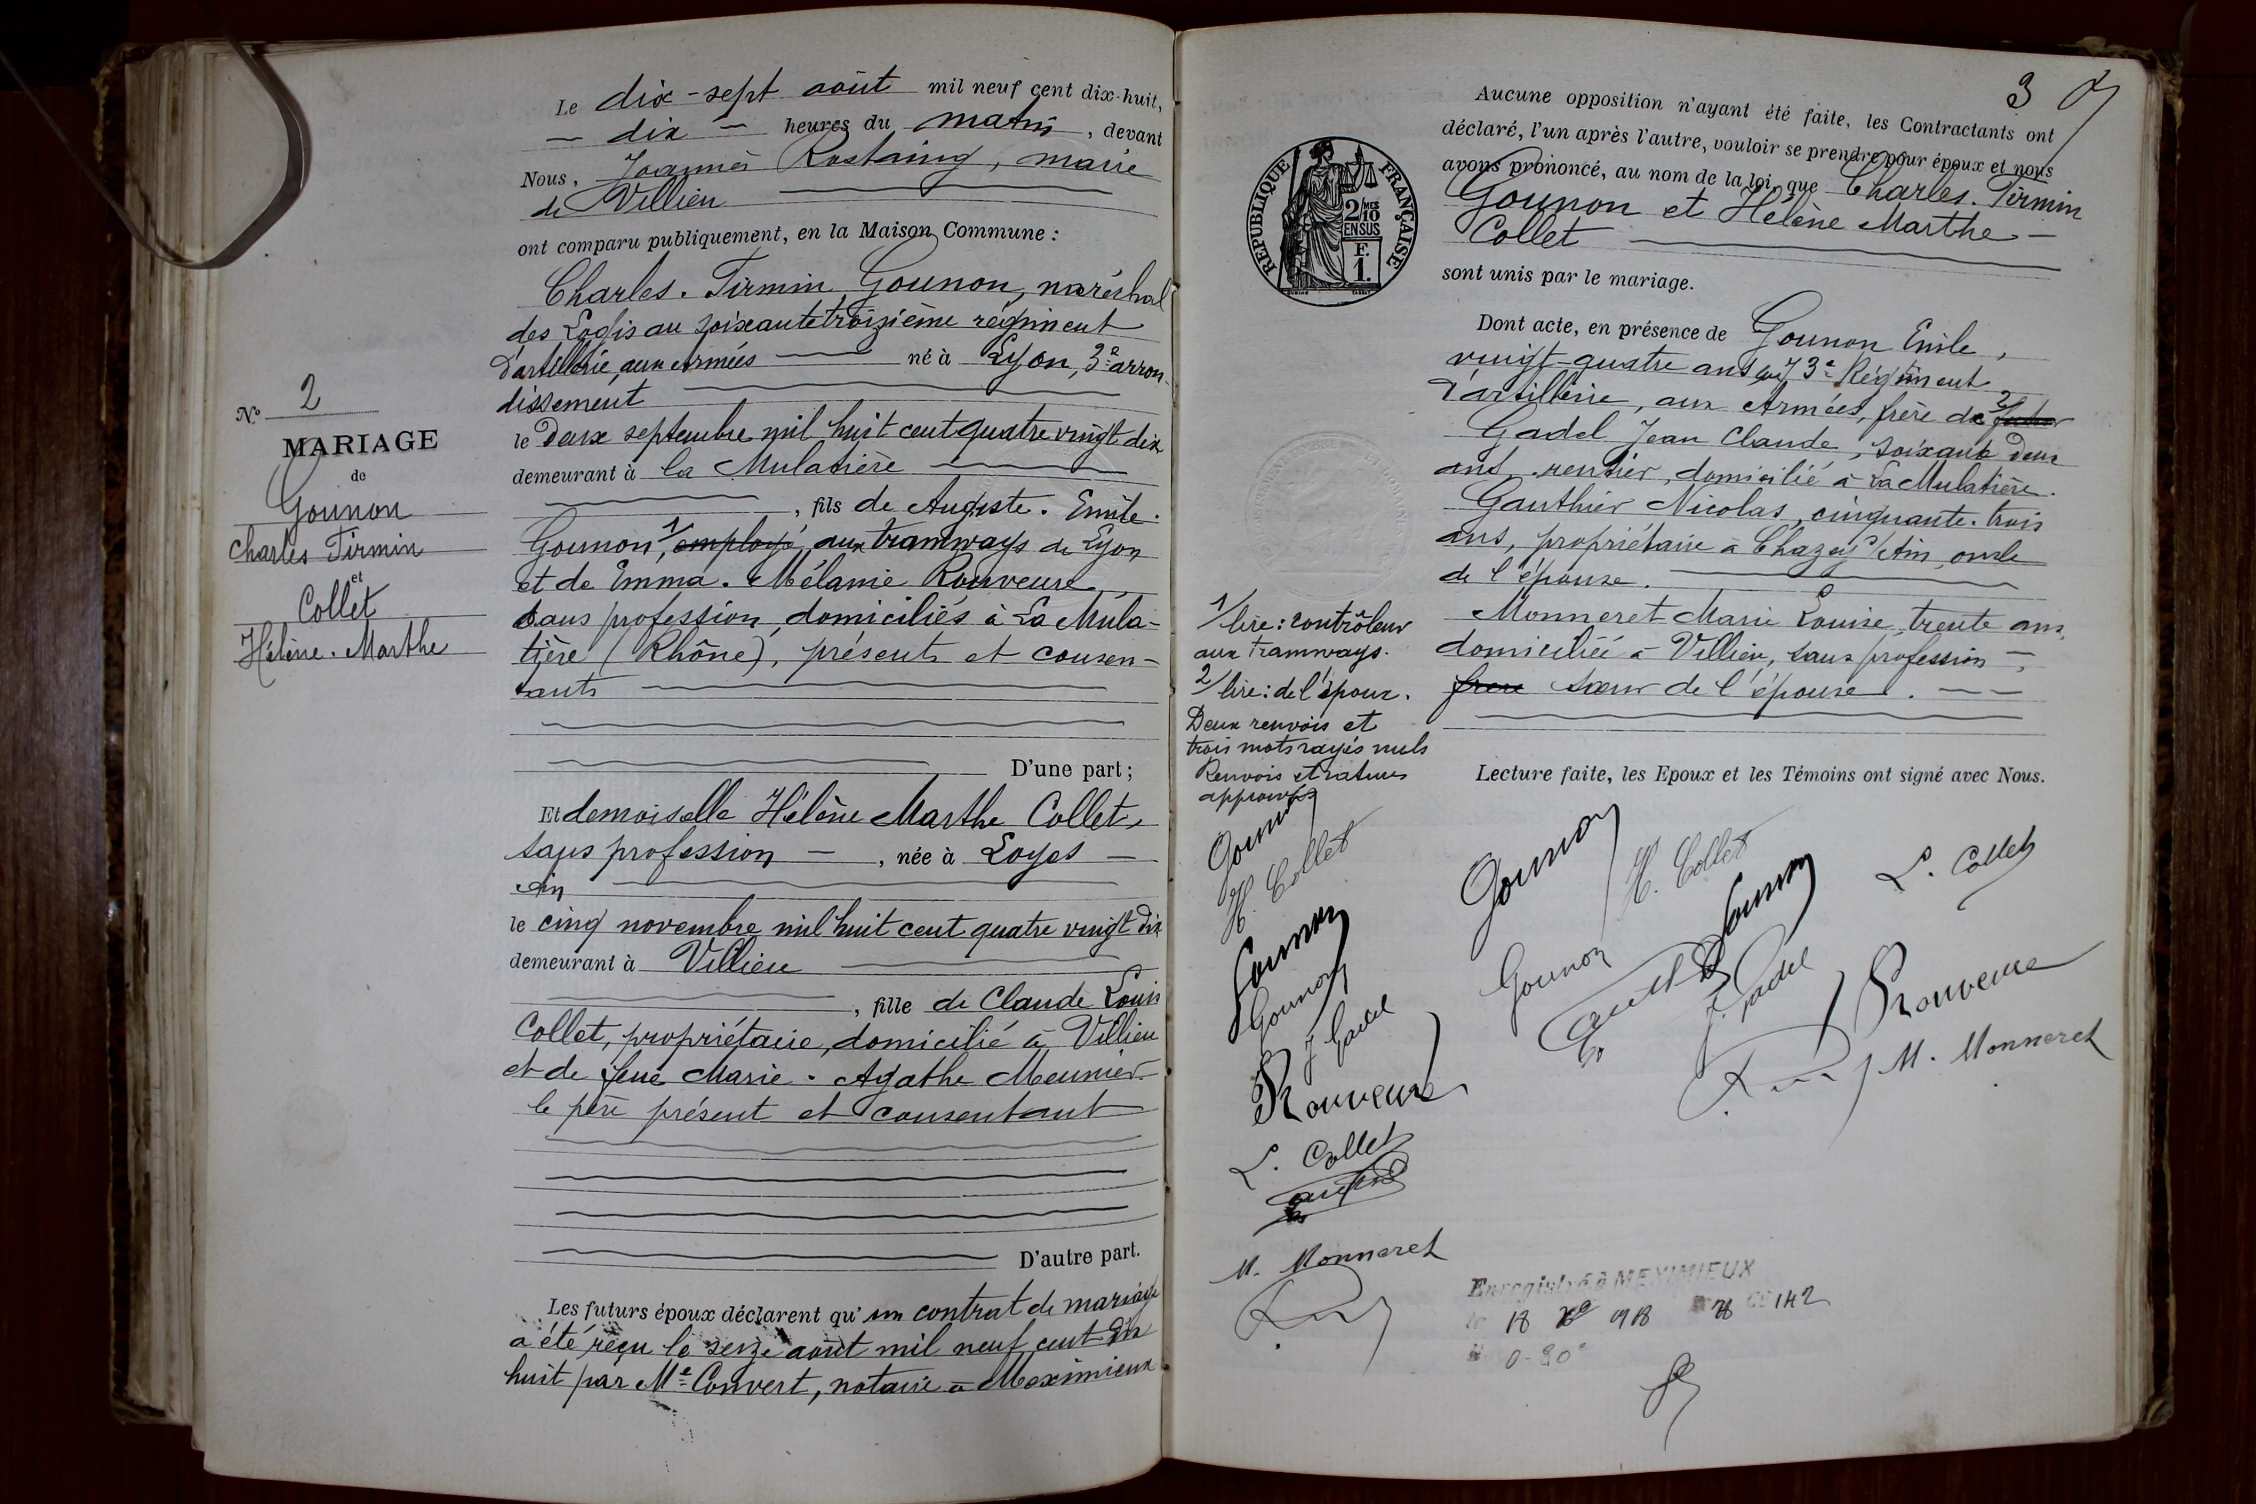 Le dix-sept août mil neuf cent dix-huit,
— dix — heures du matin, devant
Nous, Joannès Rostaing, maire
de Villieu
ont comparu publiquement, en la Maison Commune :
Charles. Firmin Gounon, maréchal
des Logis au soixante troizième régiment
d'artillerie, aux armées né à Lyon, 3e arron-
dissement
le deux septembre mil huit cent quatre vingt dix
demeurant à la Mulatière
, fils de Auguste. Emile.
Gounon, 1/ employé aux tramways de Lyon
et de Emma. Mélanie Rouveure
sans profession, domiciliés à La Mula-
tière (Rhône), présents et consen-
tants
D'une part ;
Et demoiselle Hélène Marthe Collet,
sans profession — , née à Loyes —
Ain
le cinq novembre mil huit cent quatre vingt dix
demeurant à Villieu
, fille de Claude Louis
Collet, propriétaire, domicilié à Villieu
et de feue Marie. Agathe Meunier.
le père présent et consentant
D'autre part.
Les futurs époux déclarent qu'un contrat de mariage
a été reçu le seize août mil neuf cent dix
huit par Me Convert, notaire à Meximieux
No 2
MARIAGE
de
Gounon
Charles Firmin
et
Collet
Hélène. Marthe
3
Aucune opposition n'ayant été faite, les Contractants ont
déclaré, l'un après l'autre, vouloir se prendre pour époux et nous
avons prononcé, au nom de la loi, que Charles. Firmin
Gounon et Hélène Marthe —
Collet
sont unis par le mariage.
Dont acte, en présence de Gounon Emile,
vingt-quatre ans au 73e Régiment
d'artillerie, aux Armées, frère de 2/
Gadel Jean Claude, soixante deux
ans, rentier, domicilié à La Mulatière.
Gauthier Nicolas, cinquante. trois
ans, propriétaire à Chazey s/Ain, oncle
de l'épouse.
Monneret Marie Louise, trente ans,
domiciliée à Villieu, sans profession —,
soeur de l'épouse.
Lecture faite, les Epoux et les Témoins ont signé avec Nous.
REPUBLIQUE FRANÇAISE
2/MES
10
EN SUS
F.
1.
1/ lire : contrôleur
aux Tramways.
2/ lire : de l'époux.
Deux renvois et
trois mots rayés nuls
Renvois et ratures
approuvés
Gounon
H. Collet
Gounon
Gounon
J Gadel
Rouveure
L. Collet
M. Monneret
Gounon
H. Collet
L. Collet
Gounon
Gounon
J. Gadel
Rouveure
M. Monneret
Enregistré à MEXIMIEUX
le 18 918 142